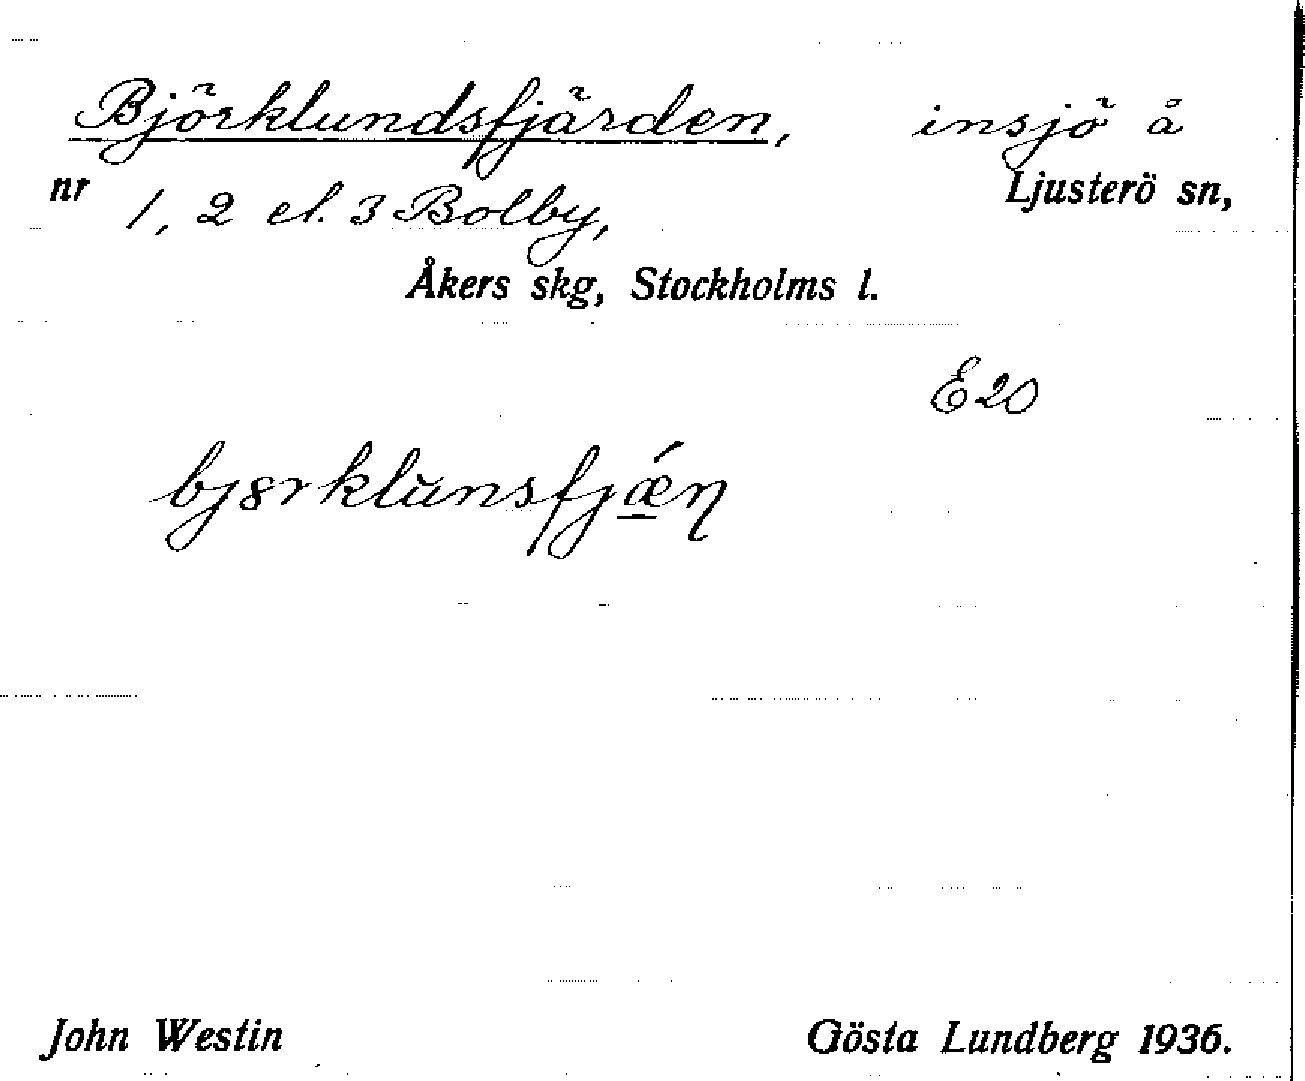 Björklundsfjärden, insjö å
nr 1, 2 el. 3 Bolby, Ljusterö sn,
Åkers skg, Stockholms l.
E20
bjɞrklŭnsfjǽ̱ŋ
John Westin Gösta Lundberg 1936.